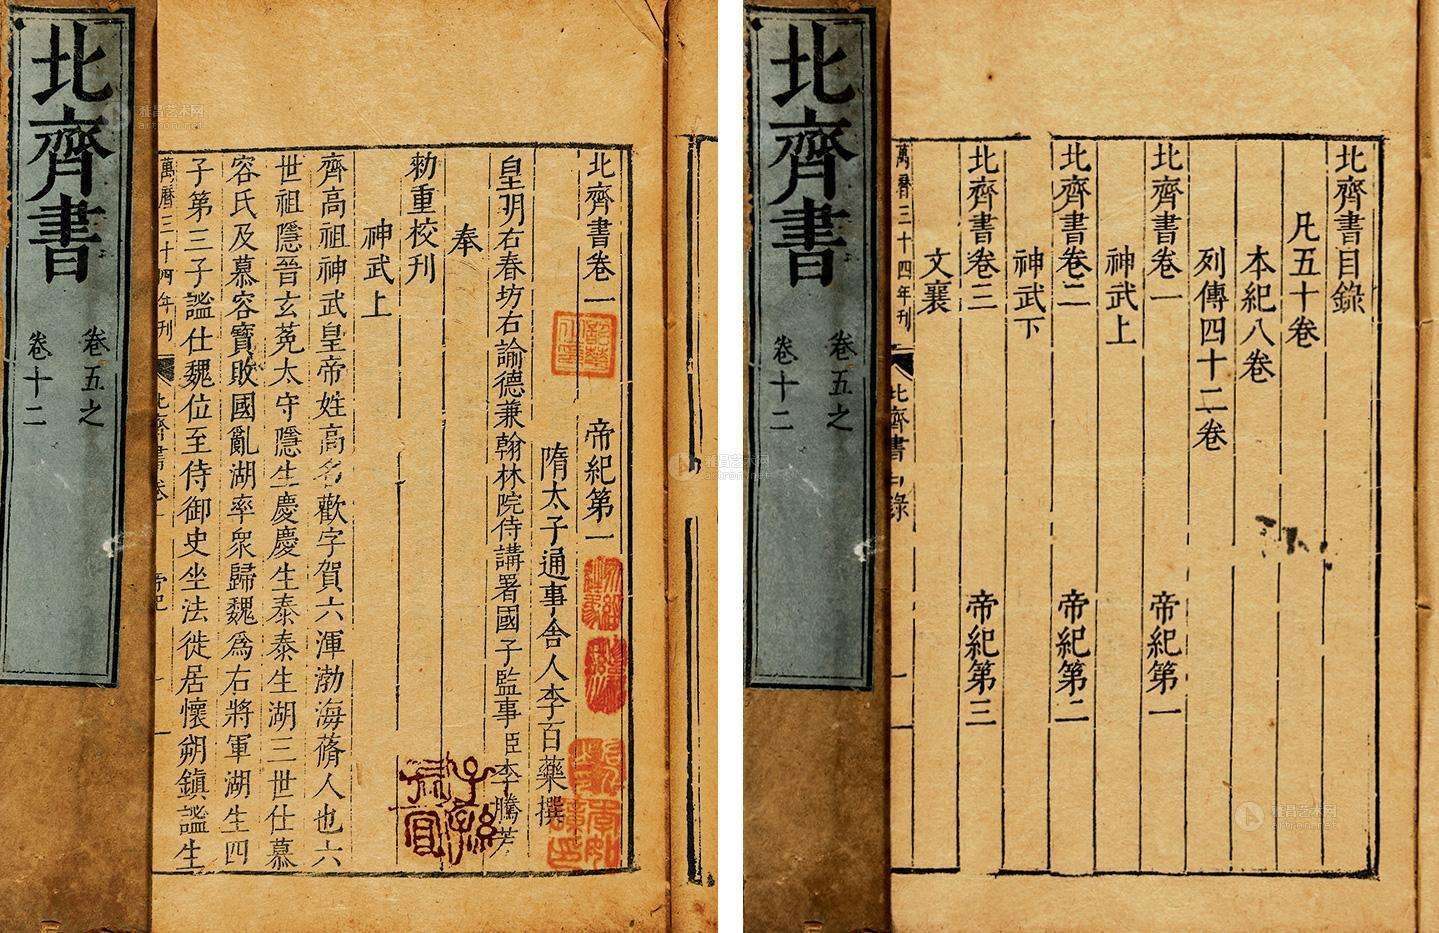 北齊書
卷五之
卷十二
北齊書卷一 帝紀第一
隋太子通事舍人李百藥撰
皇明右春坊右諭德兼翰林院侍講署國子監事臣李騰芳
奉
勑重校刊
神武上
齊高祖神武皇帝姓高名歡字賀六渾渤海蓨人也六
世祖隱晉玄菟太守隱生慶慶生泰泰生湖三世仕慕
容氏及慕容寶敗國亂湖率衆歸魏爲右將軍湖生四
子第三子謐仕魏位至侍御史坐法徙居懷朔鎮謐生
萬曆三十四年刊
北齊書卷一 帝紀 一
北齊書
卷五之
卷十二
北齊書目錄
凡五十卷
本紀八卷
列傳四十二卷
北齊書卷一 帝紀第一
神武上
北齊書卷二 帝紀第二
神武下
北齊書卷三 帝紀第三
文襄
萬曆三十四年刊
北齊書目錄 一
雅昌艺术网
artron.net
雅昌艺术网
artron.net
雅昌艺术网
artron.net